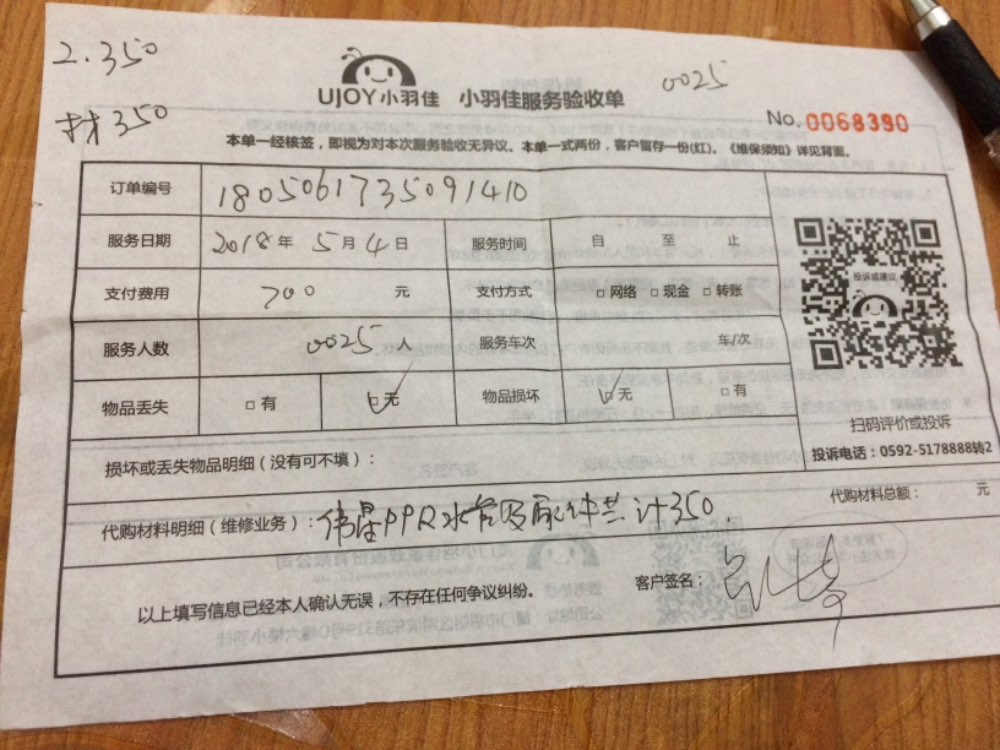 2.350
材350
0025
UJOY小羽佳 小羽佳服务验收单
No.0068390
本单一经核签，即视为对本次服务验收无异议。本单一式两份，客户留存一份(红)。《维保须知》详见背面。
订单编号 1805061735091410
服务日期 2018年5月4日 服务时间 自 至 止
支付费用 700 元 支付方式 □网络 □现金 □转账
服务人数 0025人 服务车次 车/次
物品丢失 □有 □无 物品损坏 □无 □有
投诉或建议
扫码评价或投诉
投诉电话：0592-5178888转2
损坏或丢失物品明细（没有可不填）：
代购材料明细（维修业务）：伟星PPR水管及配件共计350.
代购材料总额： 元
以上填写信息已经本人确认无误，不存在任何争议纠纷。
客户签名：